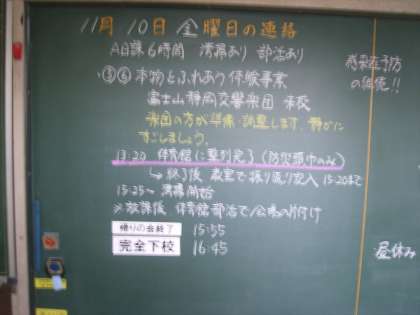 11月10日金曜日の連絡
A日課6時間 清掃あり 部活あり
感染症予防
の継続!!
⑤⑥本物とふれあう体験事業
富士山静岡交響楽団 来校
楽団の方が準備・調整します。静かに
すごしましょう。
13:20 体育館に整列完了(防災頭巾のみ)
↳終了後 教室で振り返り記入 15:20まで
15:25〜 清掃開始
※放課後、体育館部活で会場の片付け
帰りの会終了 15:55
完全下校 16:45
昼休み